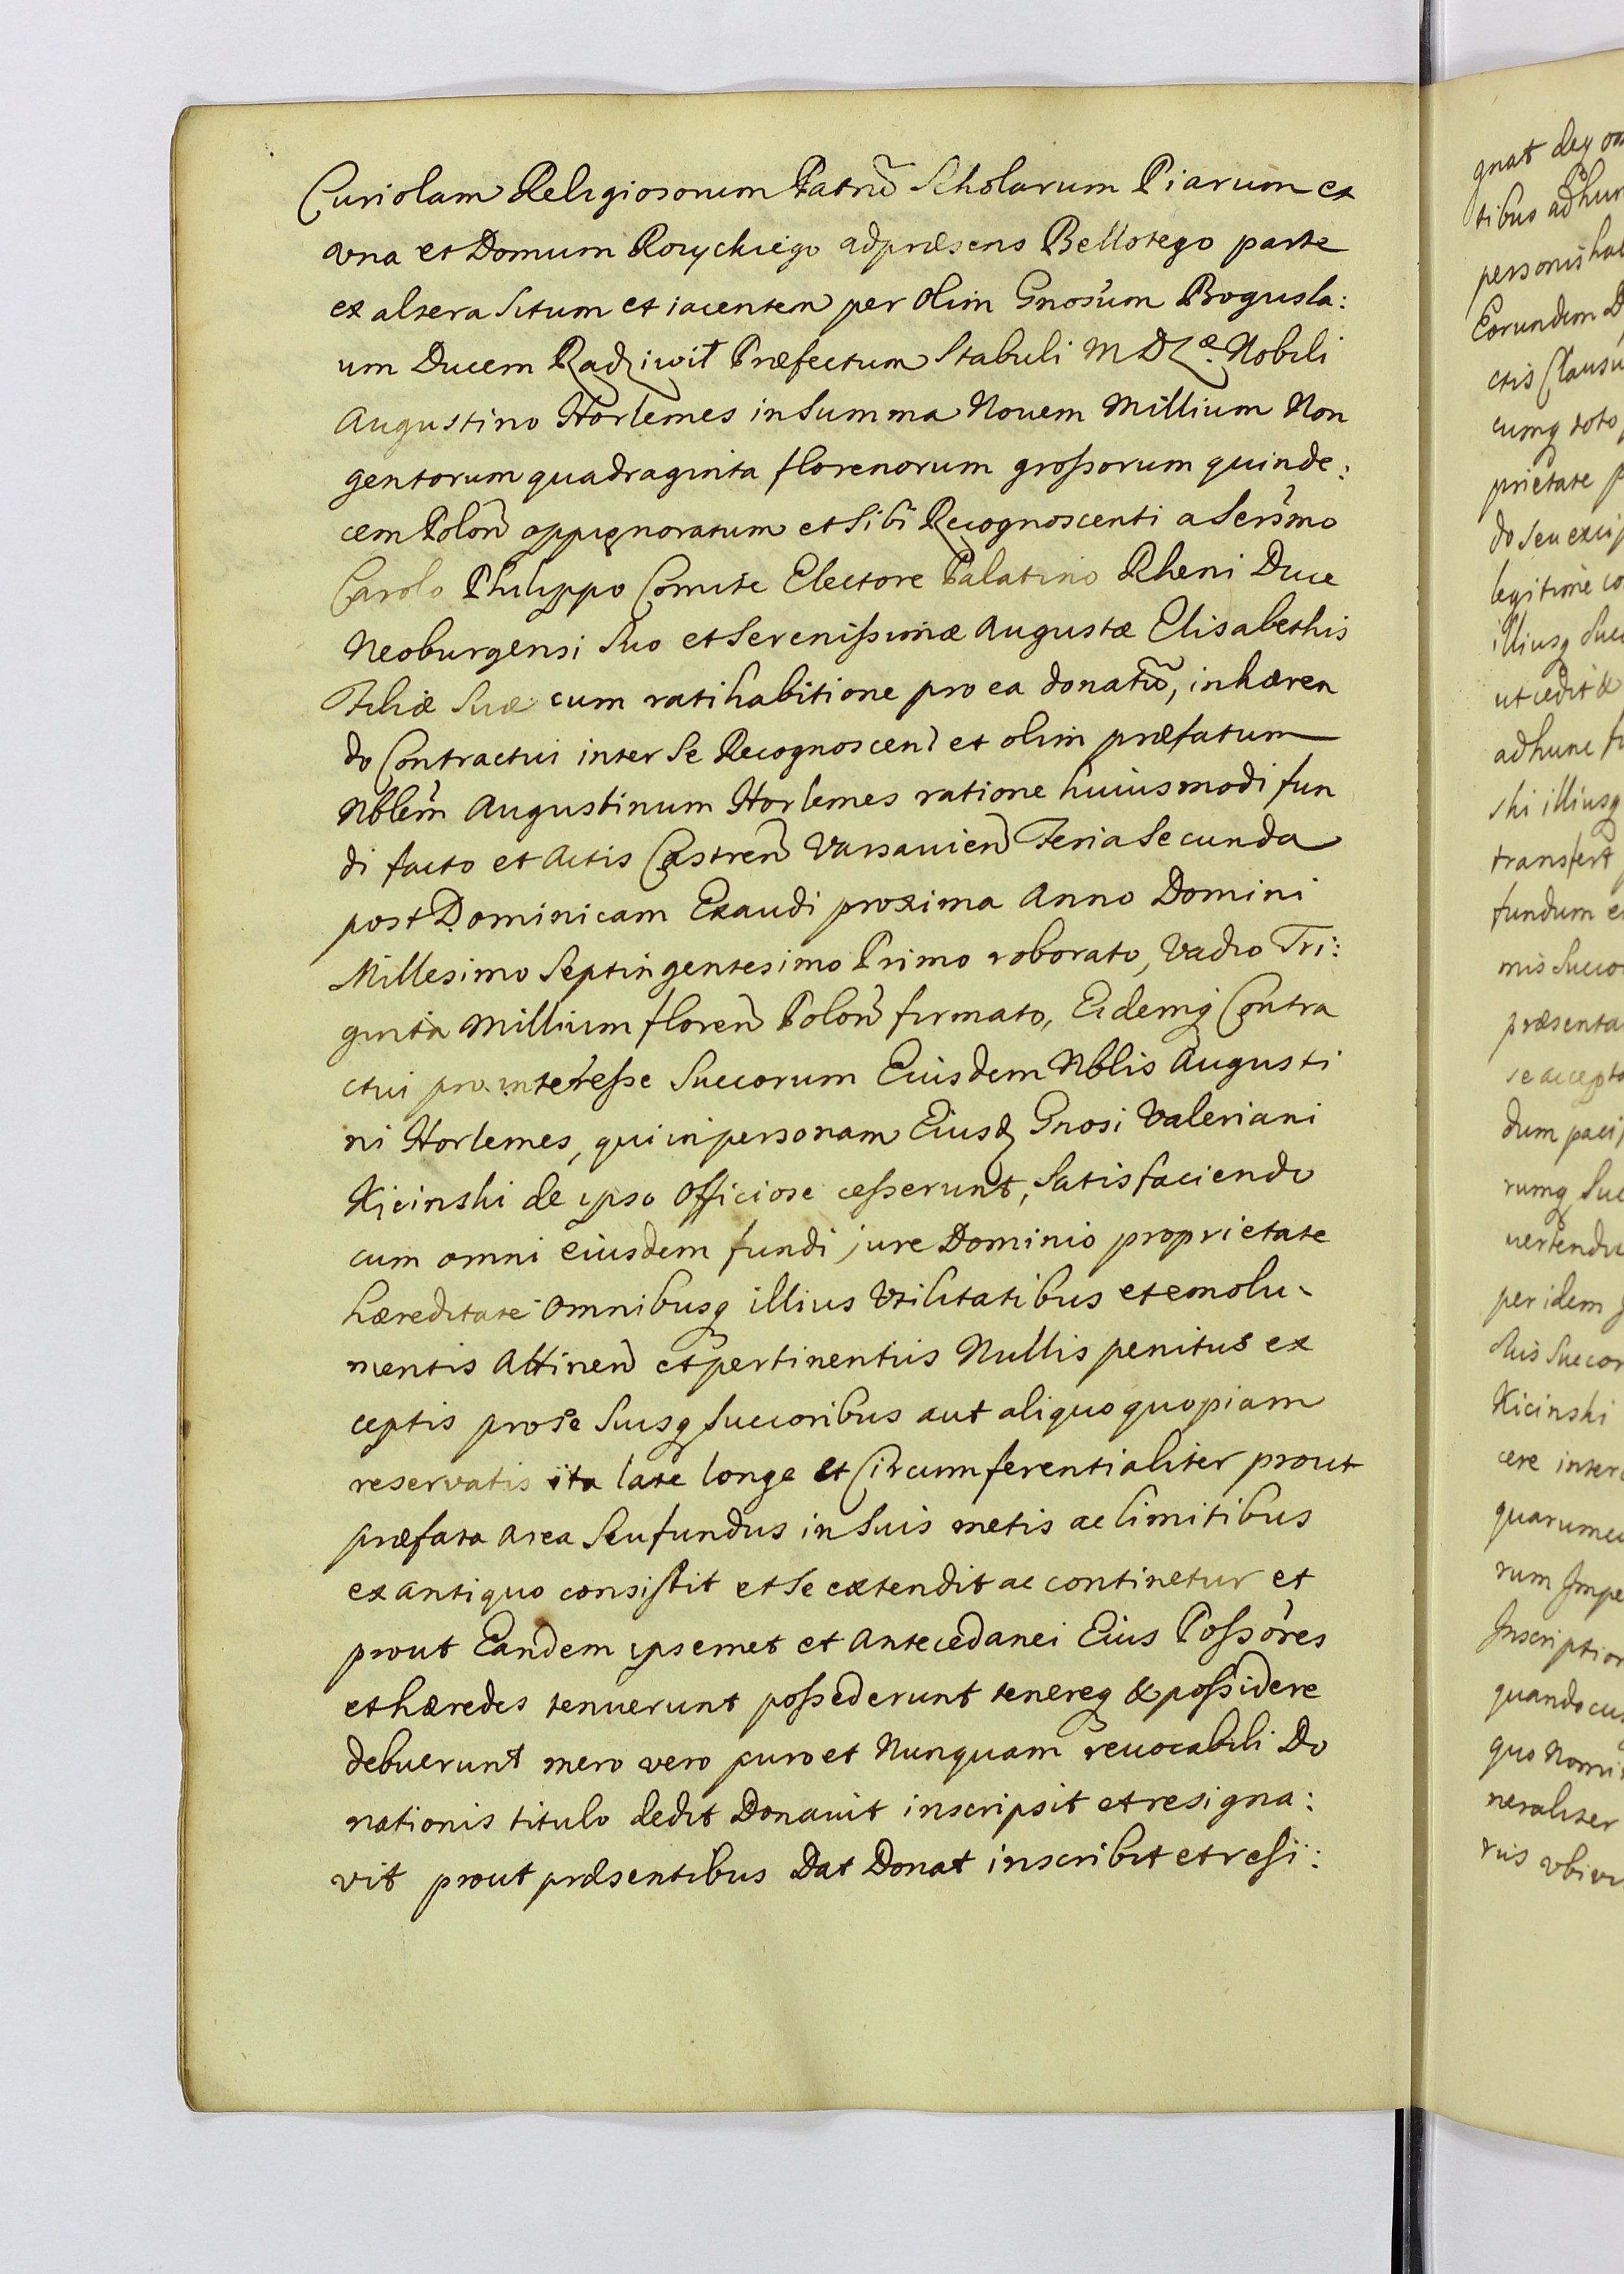 Curiolam Religiosorum Patrũ Scholarum Piarum ex
vna et Domum Rouychiego adpræsens Bellotego parte
ex altera Situm et iacentem per olim Gnosum Bogusla:
um Ducem Radziwił Præfectum Stabuli M D L æ. Nobili
Augustino Horlemes in Summa Nouem Millium Non
gentorum quadraginta florenorum grossorum quinde:
cem Polon̄ oppignoratum et Sibi Recognoscenti a Serm̄o
Carolo Philippo Comite Electore Palatino Rheni Duce
Neoburgensi Suo et Serenissimæ Augustæ Elisabethis
Filiæ Suæ cum ratihabitione pro ea donatũ, inhæren
do Contractui inter Se Recognoscen̄ et olim præfatum
Nblem̄ Augustinum Horlemes ratione huiusmodi fun
di facto et Actis Castren̄ Varsauien̄ Feria Secunda
post Dominicam Exaudi proxima Anno Domini
Millesimo Septingentesimo Primo roborato, Vadio Tri:
ginta Millium floren̄ Polon̄ firmato, Eidemq Contra
ctui pro interesse Succorum Eiusdem Nblis Augusti
ni Horlemes, qui in personam Eiusd Gnosi Valeriani
Kicinski de ipso Officiose cesserunt, Satisfaciendo
cum omni eiusdem fundi jure Dominio proprietate
hæreditate omnibusq illius Vtilitatibus et emolu-
mentis Attinen̄ et pertinentiis Nullis penitus ex
ceptis pro Se Suisq Succoribus aut aliquo quopiam
reservatis ita late longe et Circumferentialiter prout
præfata Area Seu fundus in Suis metis ac limitibus
ex antiquo consistit et Se extendit ac continetur et
prout Eandem ipsemet et Antecedanei Eius Possores
et hæredes tenuerunt possederunt tenereq & possidere
debuerunt mero vero puro et Nunquam reuocabili Do
nationis titulo dedit Donauit inscripsit et resigna:
vit prout præsentibus Dat Donat inscribit et resi:
gnat
tibus
personis
Eorundem
ctis Clausu
cumq toto
prietate
do Seu
legitime
illiusq Succ
ut cedit &
adhunc
ski illiusq
transfert
fundum
mis Succo
præsenta
se accepto
dum paci
rumq Suc
uertendu
per idem
Suis Succor
Kicinski
cere inter
quarumcu
rum Impe
Inscription
quandocu
quo Nomi
neraliter
riis vbiui